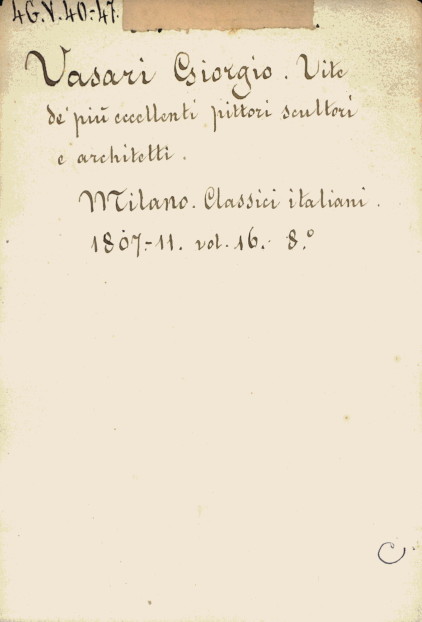 4G.V.40.-47.
Vasari Giorgio. Vite
de' più eccellenti pittori scultori
e architetti.
Milano. Classici italiani.
1807.-11. vol. 16. 8.°
C